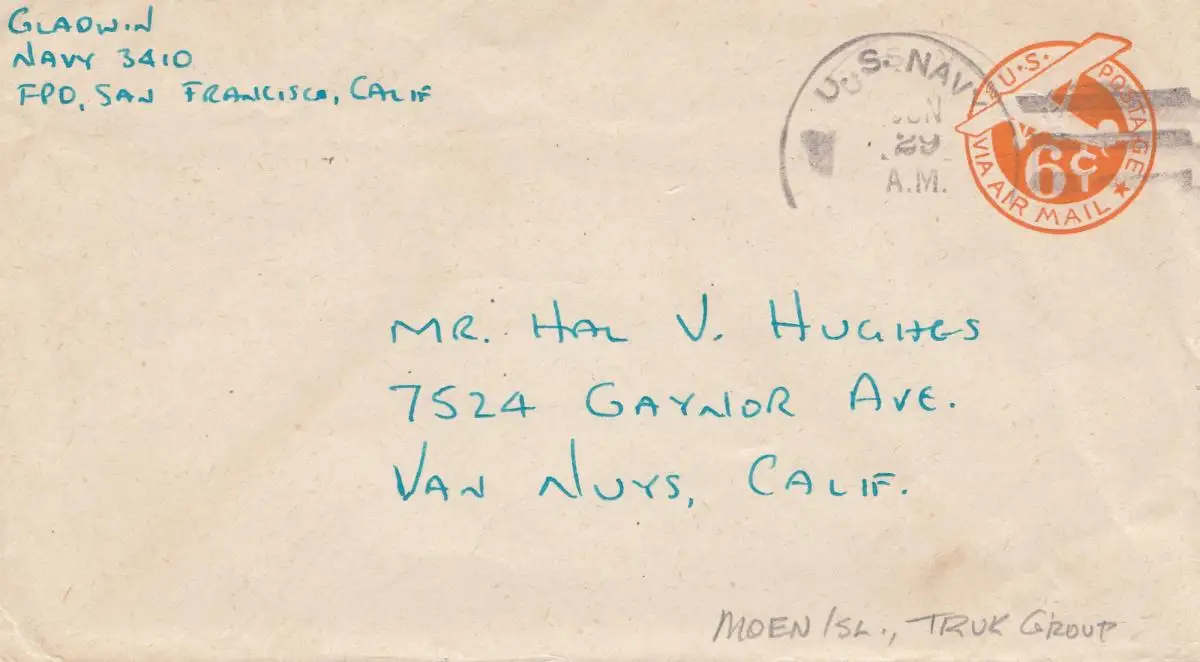 GLADWIN
NAVY 3410
FPO, SAN FRANCISCO, CALIF
U.S. NAVY
JUN
29
A.M.
U.S. POSTAGE
6¢
VIA AIR MAIL
MR. HAL V. HUGHES
7524 GAYNOR AVE.
VAN NUYS, CALIF.
MOEN ISL., TRUK GROUP